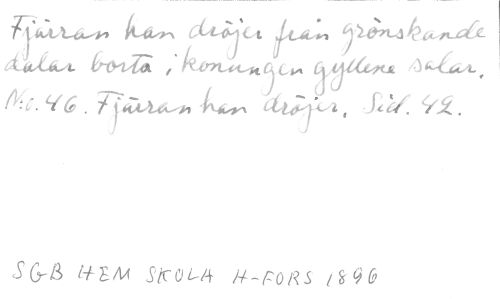 Fjärran han dröjer från grönskande
dalar borta i konungen gyllene salar.
N:o. 46. Fjärran han dröjer. Sid. 42.
SGB HEM SKOLA H-FORS 1896